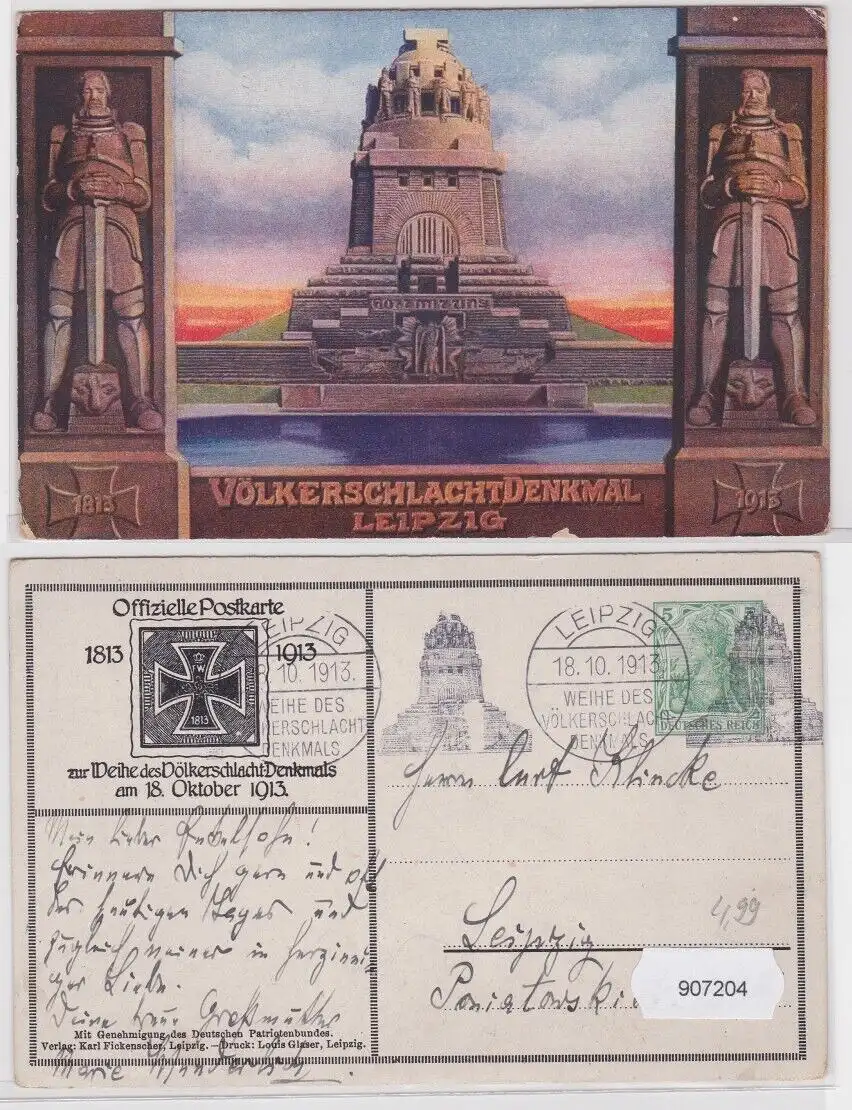 GOTT MIT UNS
1813
VÖLKERSCHLACHTDENKMAL
LEIPZIG
1913
Offizielle Postkarte
1813 1913
W
1813
zur Weihe des Völkerschlacht-Denkmals
am 18. Oktober 1913.
LEIPZIG
8.10.1913.
WEIHE DES
ERSCHLACHT
DENKMALS
LEIPZIG
18.10.1913
WEIHE DES
VÖLKERSCHLACH
DENKMALS
5
DEUTSCHES REICH
Herrn Curt Klincke
Leipzig
Poniatowski
4,99
907204
Mein lieber Enkelsohn!
Erinnere Dich gern und oft
des heutigen Tages und
zugleich meiner in herzinni-
ger Liebe.
Deine treue Großmutter
Marie
Mit Genehmigung des Deutschen Patriotenbundes.
Verlag: Karl Fickenscher, Leipzig. — Druck: Louis Glaser, Leipzig.